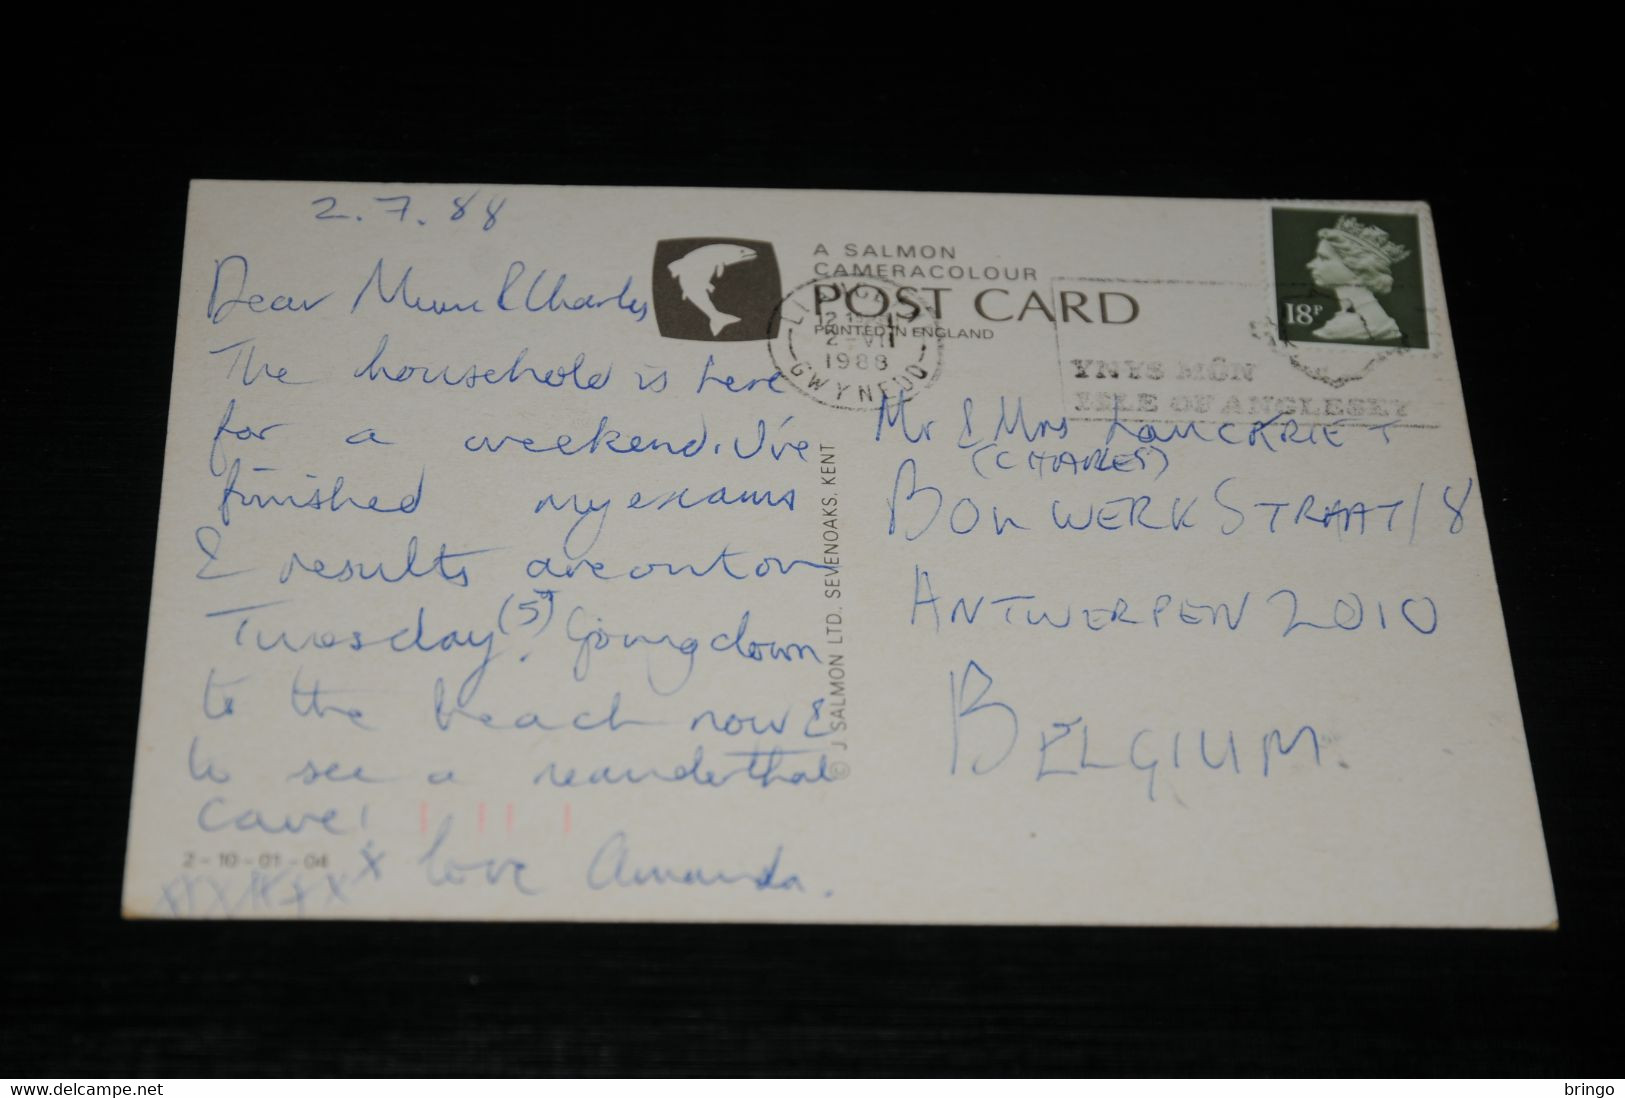 2.7.88
Dear Mum & Charles
The household is here
for a weekend. I've
finished my exams
& results are out on
Tuesday (5th). Going down
to the beach now &
to see a neanderthal
cave!
x love Amanda.
2-10-01-04
A SALMON
CAMERACOLOUR
POST CARD
PRINTED IN ENGLAND
2-VII
1988
GWYNEDD
YNYS MÔN
ISLE OF ANGLESEY
18P
© J SALMON LTD. SEVENOAKS. KENT
Mr & Mrs LANCKRIET
(CHARLES)
BOLWERKSTRAAT 18
ANTWERPEN 2010
BELGIUM.
bringo
delcampe.net